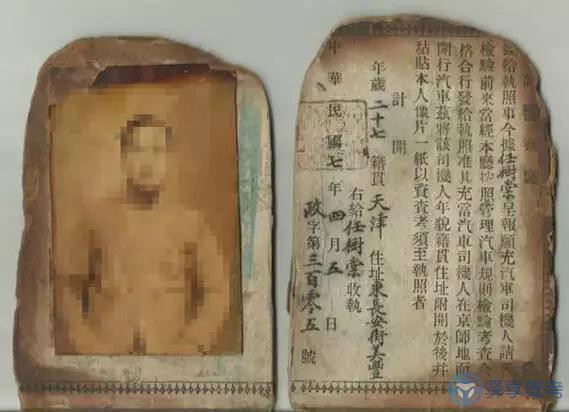 發給執照事今據任樹棠呈報願充汽車司機人請
檢驗前來當經本廳按照管理汽車規則檢驗考查合
格合行發給執照准其充當汽車司機人在京師地面
開行汽車茲將該司機人年貌籍貫住址附開於後并
黏貼本人像片一紙以資查考須至執照者
計開
年歲二十七 籍貫天津 住址東長安街美豐
右給任樹棠收執
中華民國七年四月五日
政字第三百零五號
驛享駕考